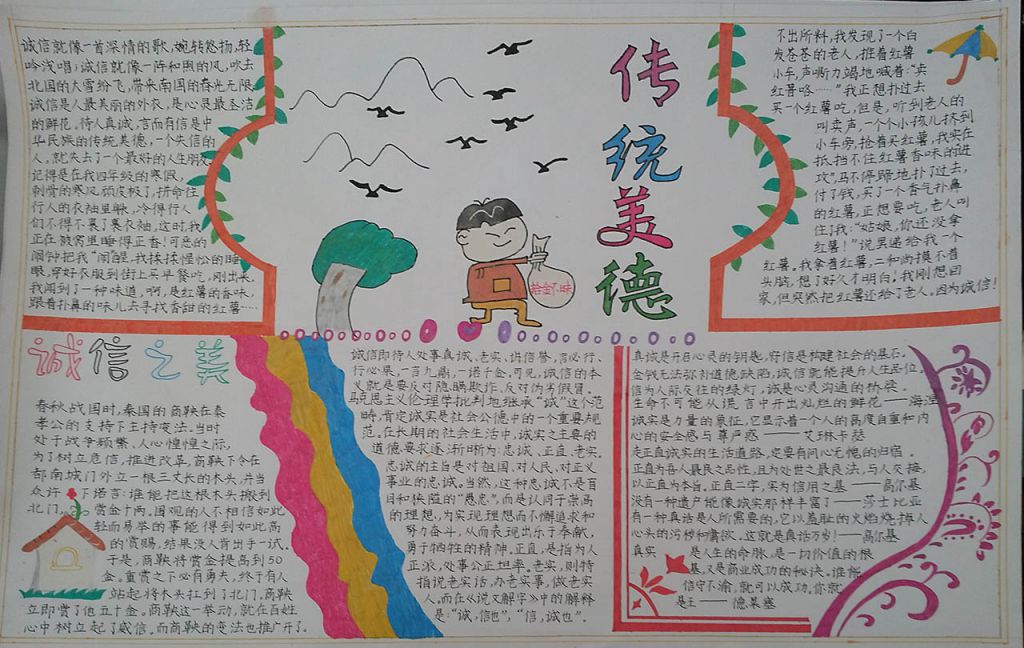 诚信就像一首深情的歌，婉转悠扬，轻
吟浅唱；诚信就像一阵和煦的风，吹去
北国的大雪纷飞，带来南国的春光无限。
诚信是人最美丽的外衣，是心灵最圣洁
的鲜花。待人真诚，言而有信是中
华民族的传统美德，一个失信的
人，就失去了一个最好的人生朋友
记得是在我四年级的寒假，
刺骨的寒风顽皮极了，拼命往
行人的衣袖里躲，冷得行人
们不得不裹了裹衣袖，这时，我
正在被窝里睡得正香！可恶的
闹钟把我“闹”醒，我揉揉惺忪的睡
眼，穿好衣服到街上买早餐吃，刚出来，
我闻到了一种味道，啊，是红薯的香味，
跟着扑鼻的味儿去寻找香甜的红薯……
传统美德
拾金不昧
不出所料，我发现了一个白
发苍苍的老人，推着红薯
小车，声嘶力竭地喊着：“卖
红薯咯……”我正想扑过去
买一个红薯吃，但是，听到老人的
叫卖声，一个个小孩儿挤到
小车旁，抢着买红薯，我实在
抵挡不住红薯香味的进
攻”，马不停蹄地扑了过去，
付了钱，买了一个香气扑鼻
的红薯，正想要吃，老人叫
住了我：“姑娘，你还没拿
红薯！”说罢递给我一个
红薯。我拿着红薯，二和尚摸不着
头脑，想了好久才明白：我刚想回
家，但突然把红薯还给了老人。因为诚信！
诚信之美
春秋战国时，秦国的商鞅在秦
孝公的支持下主持变法。当时
处于战争频繁、人心惶惶之际，
为了树立危信，推进改革，商鞅下令在
都南城门外立一根三丈长的木头，并当
众许下诺言：谁能把这根木头搬到
北门，赏金十两。围观的人不相信如此
轻而易举的事能得到如此高
的赏赐，结果没人肯出手一试。
于是，商鞅将赏金提高到50
金。重赏之下必有勇夫，终于有人
站起将木头扛到了北门。商鞅
立即赏了他五十金。商鞅这一举动，就在百姓
心中树立起了威信。而商鞅的变法也推广开了。
诚信即待人处事真诚、老实、讲信誉，言必行、
行必果，一言九鼎，一诺千金。可见，诚信的本
义就是要反对隐瞒欺诈、反对伪劣假冒。
马克思主义伦理学批判地继承“诚”这个范
畴，肯定诚实是社会公德中的一个重要规
范。在长期的社会生活中，诚实之主要的
道德要求逐渐晰为：忠诚、正直、老实。
忠诚的主旨是对祖国、对人民、对正义
事业的忠诚。当然，这种忠诚不是盲
目和狭隘的“愚忠”，而是认同于崇高
的理想，为实现理想而不懈追求和
努力奋斗，从而表现出乐于奉献，
勇于牺牲的精神。正直，是指为人
正派，处事公正坦率。老实，则特
指说老实话，办老实事，做老实
人。而在《说文解字》中的解释
是：“诚，信也”，“信，诚也”。
真诚是开启心灵的钥匙，好信是构建社会的基石。
金钱无法弥补道德缺陷，诚信就能提升人生品位。
信为人际交往的绿灯，诚是心灵沟通的桥梁。
生命不可能从谎言中开出灿烂的鲜花——海涅
诚实是力量的象征，它显示着一个人的高度自重和内
心的安全感与尊严感——艾琳卡瑟
走正直诚实的生活道路，定要有问心无愧的归宿。
正直为吾人最良之品性，且为处世之最良法，与人交接，
以正直为本旨。正直二字，实为信用之基——高尔基
没有一种遗产能像诚实那样丰富了——莎士比亚
有一种真话是人所需要的，它以羞耻的火焰烧掉人
心头的污秽和庸俗，这就是真话万岁！——高尔基
真实是人生的命脉，是一切价值的根
基，又是商业成功的秘诀。谁能
信守不渝，就可以成功。你就
是王——德莱塞